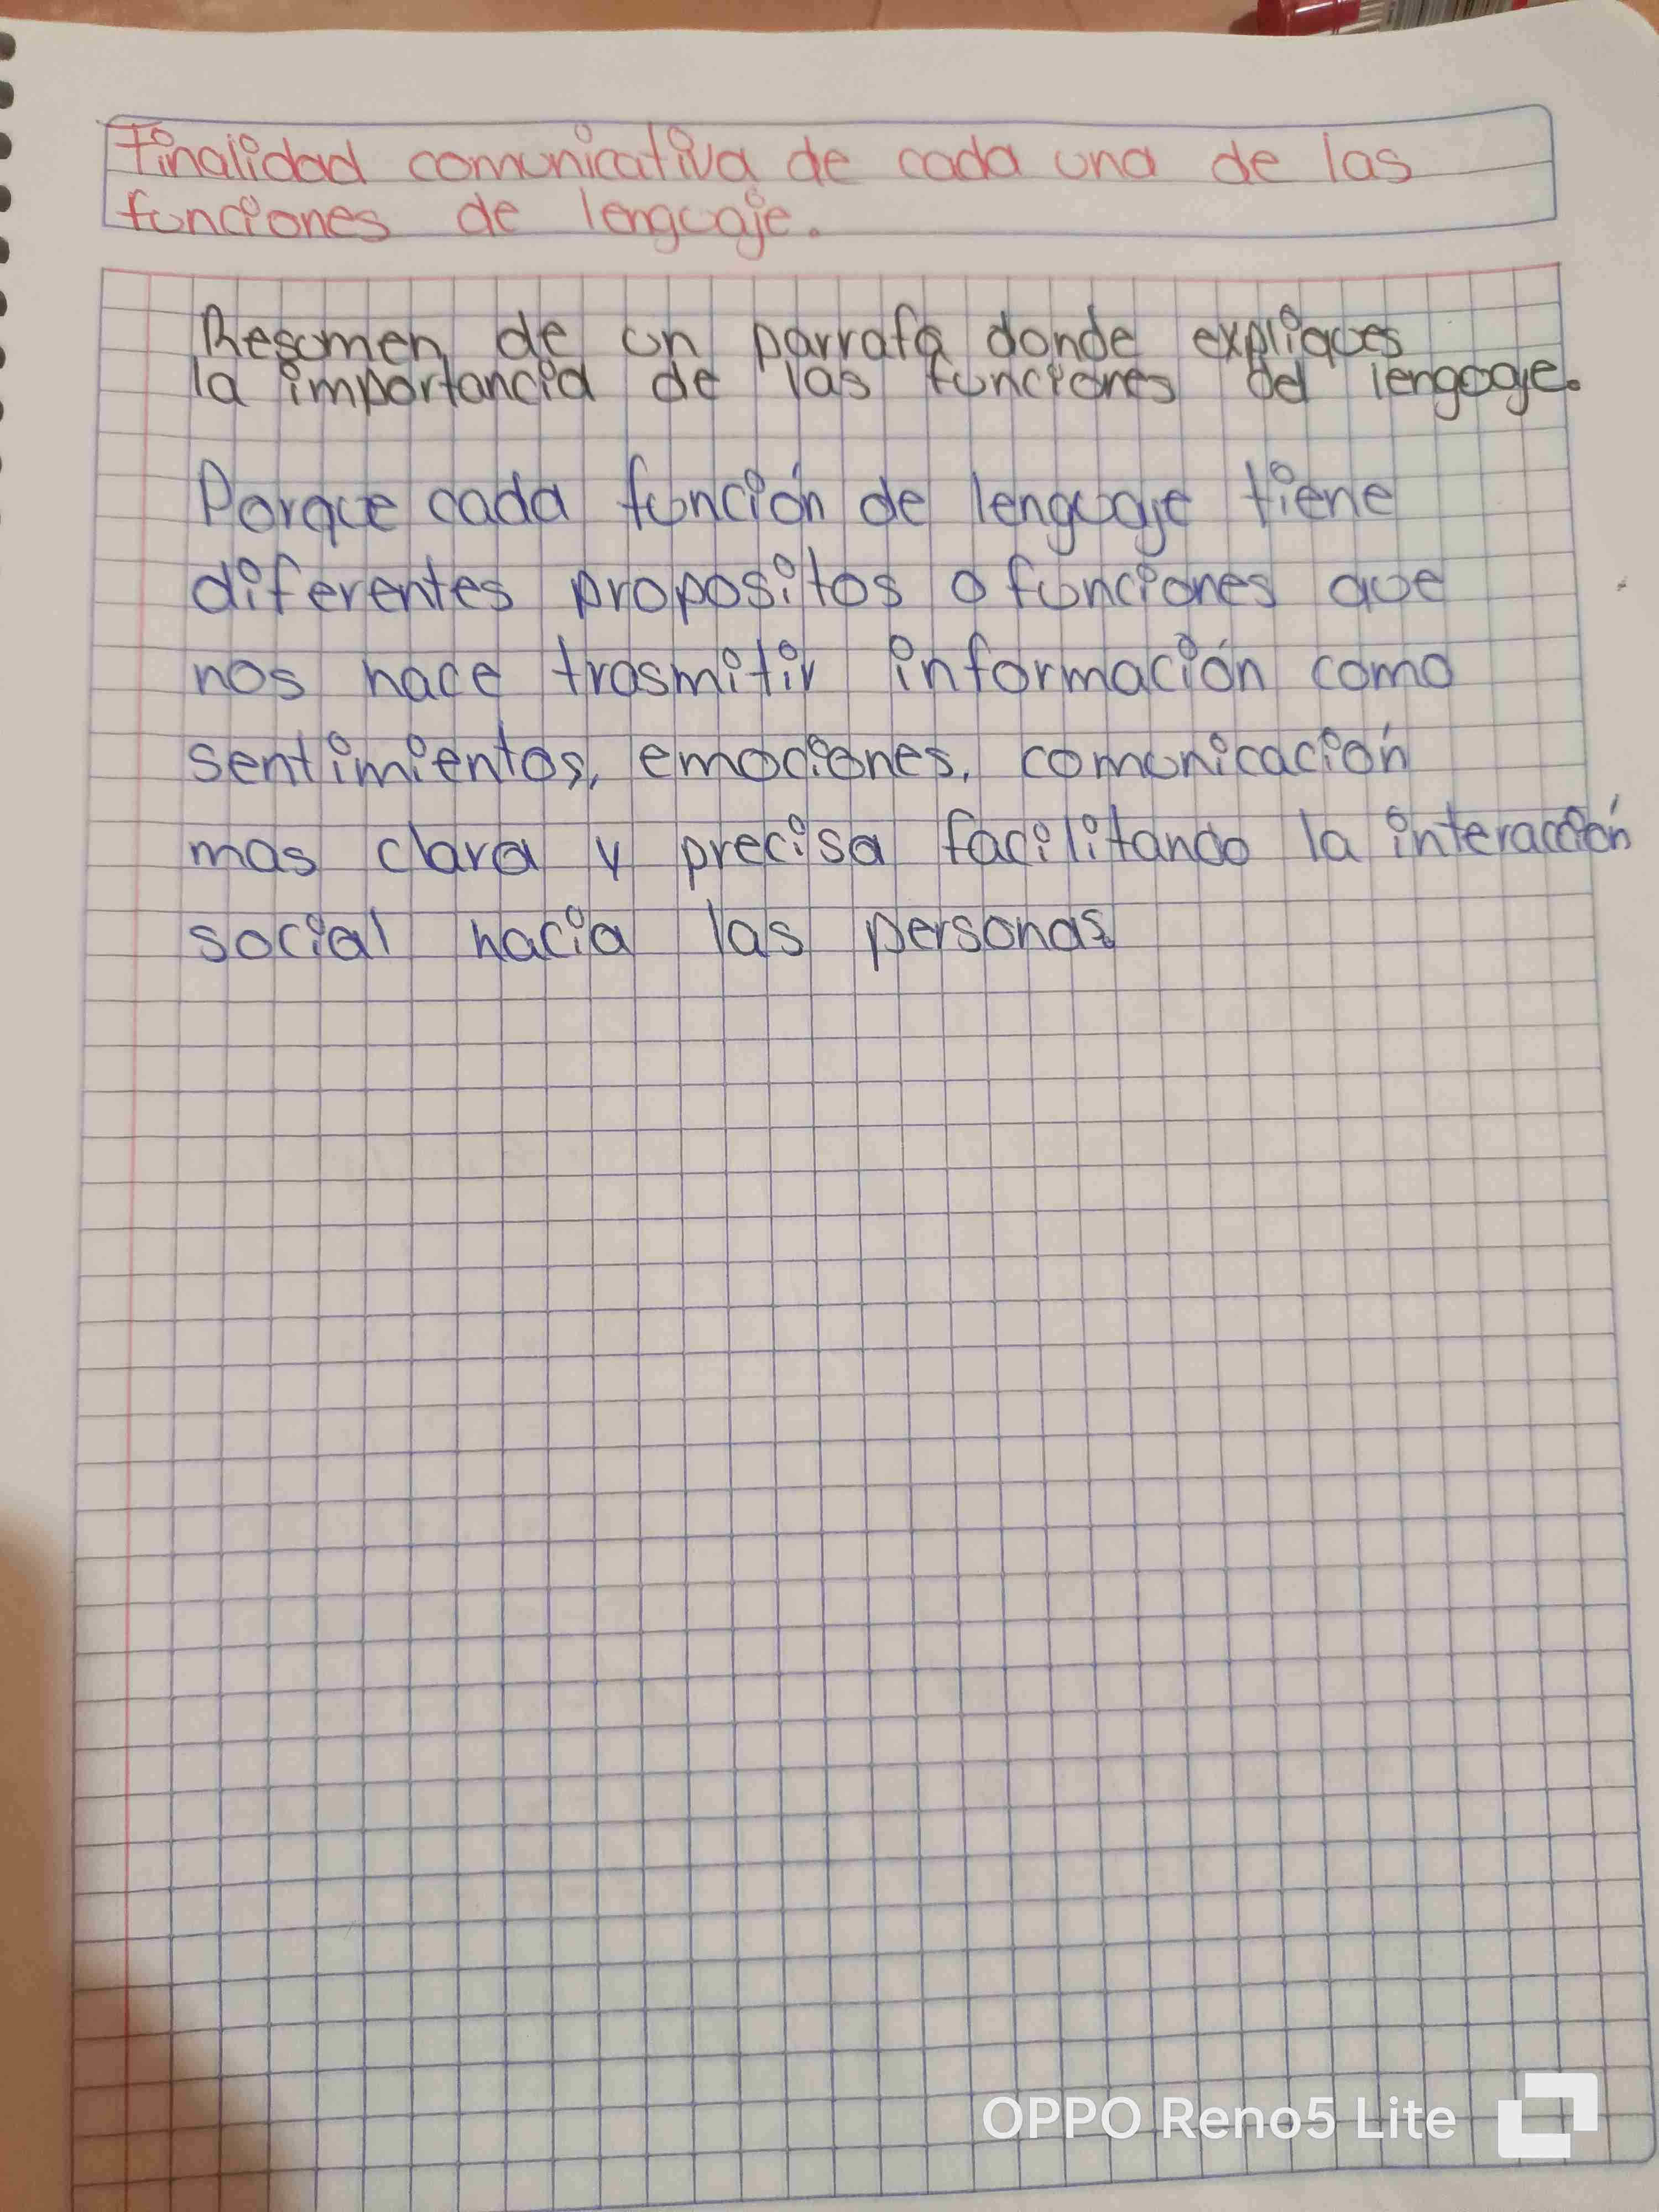 Finalidad comunicativa de cada una de las
funciones de lenguaje.
Resumen de un parrafo donde expliques
la importancia de las funciones del lenguaje.
Porque cada función de lenguaje tiene
diferentes propositos o funciones que
nos hace trasmitir información como
sentimientos, emociones, comunicación
mas clara y precisa facilitando la interacción
social hacia las personas
OPPO Reno5 Lite